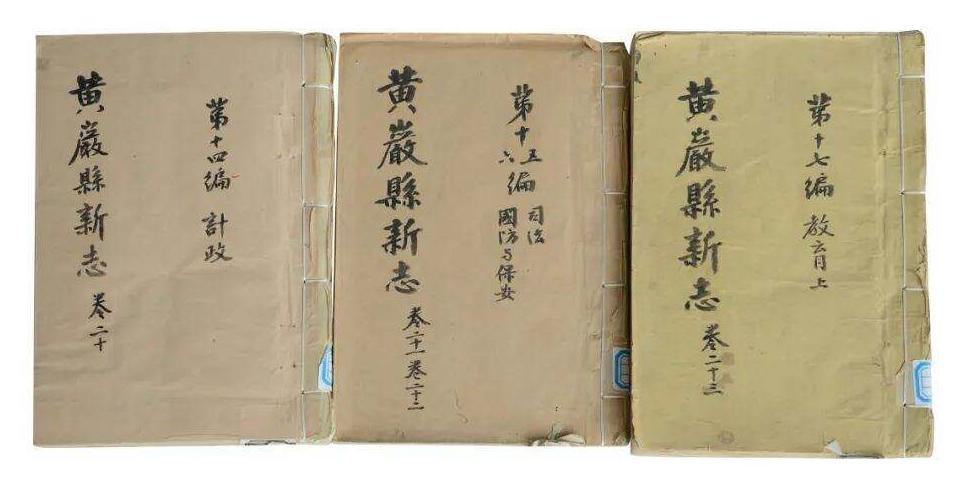 黄巖縣新志 卷二十
第十四編 計政
黄巖縣新志 卷二十一 卷二十二
第十五六編 司法
國防与保安
黄巖縣新志 卷二十三
第十七編 教育上